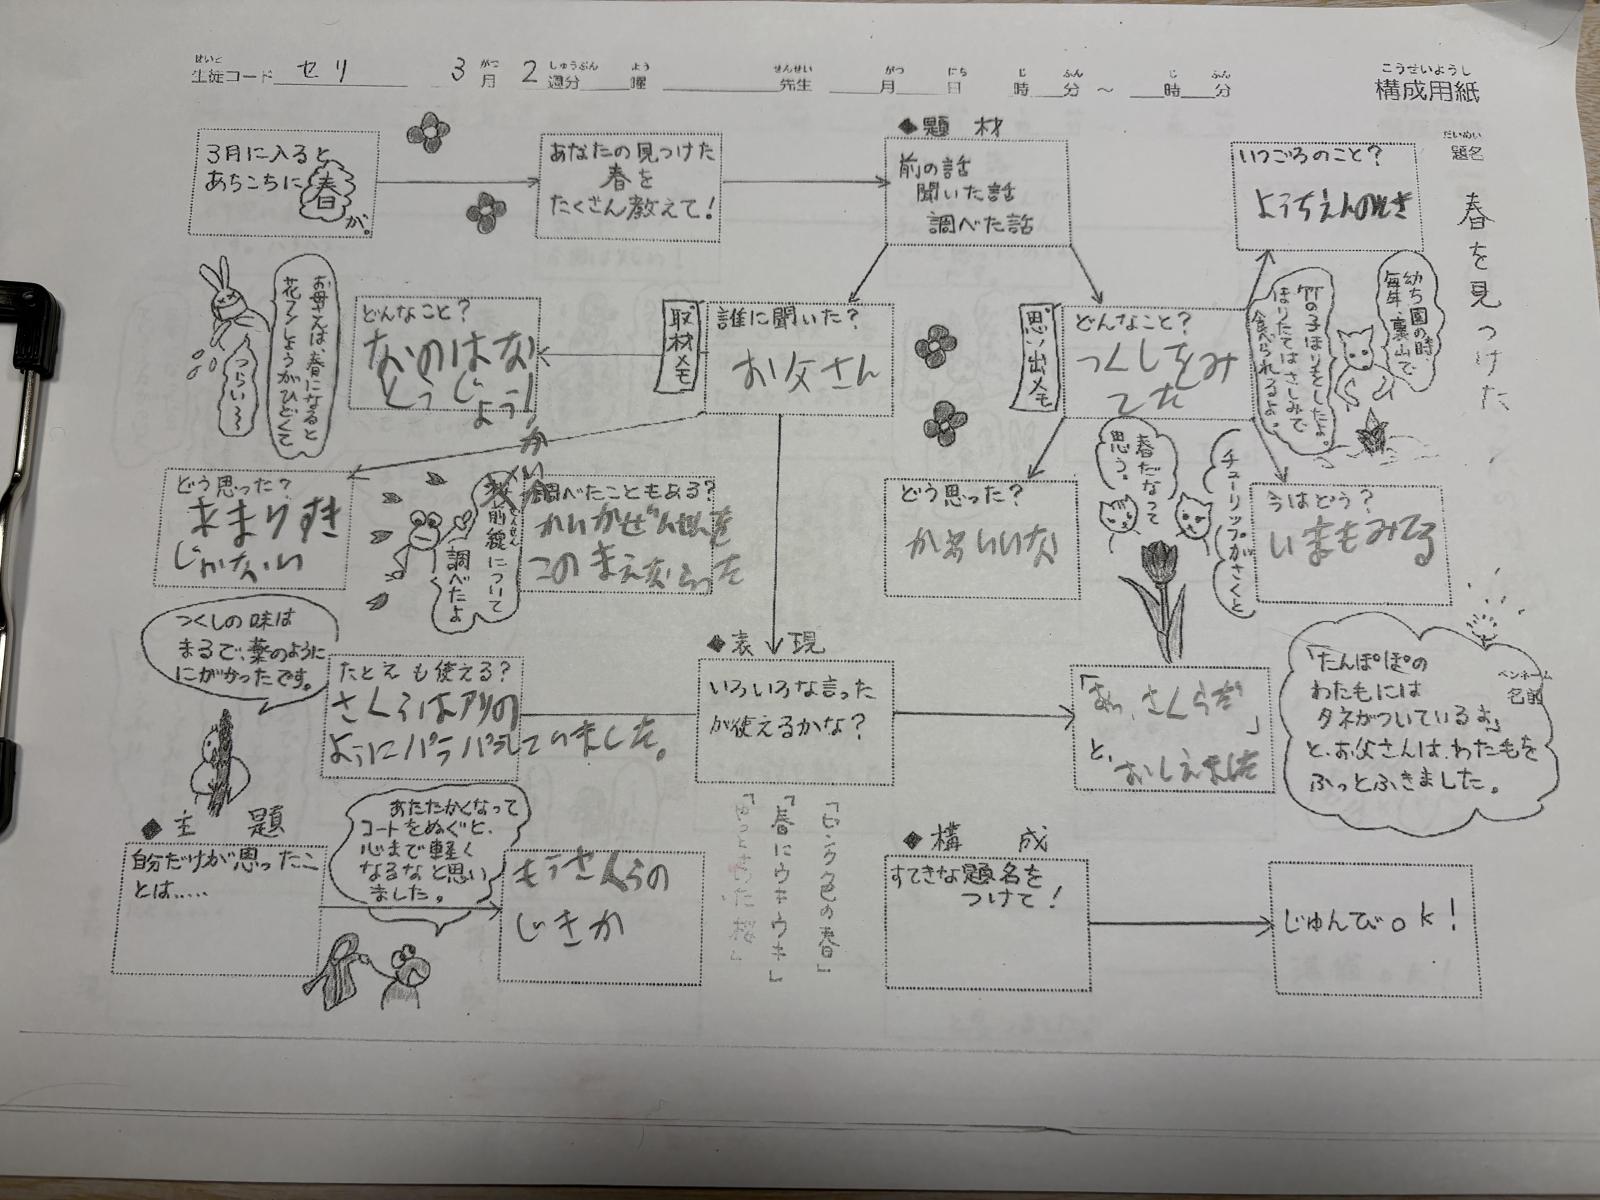 せいと
生徒コード セリ
がつ しゅうぶん よう
3月 2週分 曜
せんせい がつ にち じ ふん じ ふん
先生 月 日 時 分 ～ 時 分
こうせいようし
構成用紙
だいめい
題名
春を見つけた
3月に入ると
あちこちに春が。
あなたの見つけた
春を
たくさん教えて!
◆題材
前の話
聞いた話
調べた話
いつごろのこと?
ようちえんのとき
幼ち園の時、
毎年、裏山で
竹の子ほりをしたよ。
ほりたてはさしみで
食べられるよ。
お母さんは、春になると
花フンしょうがひどくて
つらい〜
どんなこと?
なのはな
とうじょう!
取材メモ
誰に聞いた?
お父さん
思い出メモ
どんなこと?
つくしをみ
てた
どう思った?
あまりすき
じゃない
前線について
調べたよ
調べたこともある?
かいかぜんせんを
このまえならった
どう思った?
かわいいな
春だなって
思う。
チューリップがさくと
今はどう?
いまもみてる
つくしの味は
まるで、薬のように
にがかったです。
たとえも使える?
さくらはアリの
ようにパラパラしていました。
◆表現
いろいろな言った
が使えるかな?
「あっ、さくらだ
」
と、おしえました
ペンネーム
名前
「たんぽぽの
わた毛には
タネがついているよ」
と、お父さんは、わた毛を
ふっとふきました。
◆主題
自分だけが思ったこ
とは……
あたたかくなって
コートをぬぐと、
心まで軽く
なるなと思い
ました。
もうさくらの
じきか
「ピンク色の春」
「春にウキウキ」
◆構成
すてきな題名を
つけて!
じゅんびok!